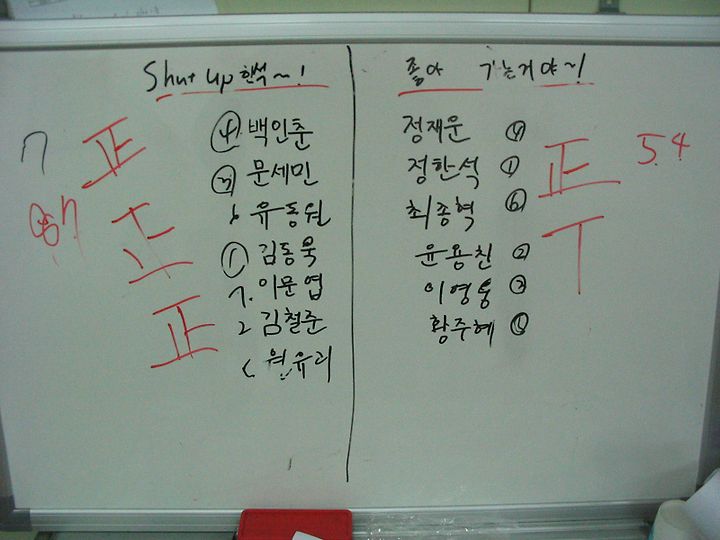 Shut up 한석~!
④ 백인춘
③ 문세민
6 유동원
① 김동욱
7. 이문엽
2 김철준
원유리
正
正
正
7
좋아 가는거야~!
정재운 ④
정한석 ①
최종혁 ⑥
윤용친 ②
이영웅 ③
황주혜 ⑤
正
丅
5.4